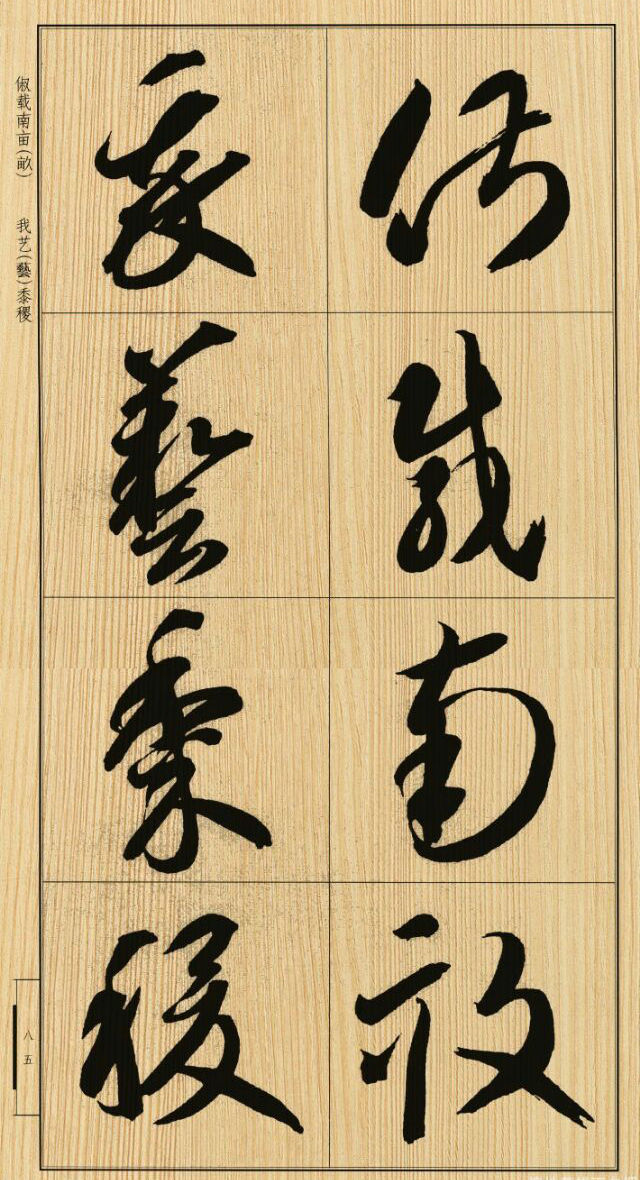 俶载南亩
我艺黍稷
俶载南亩(畝) 我艺(藝)黍稷
八五